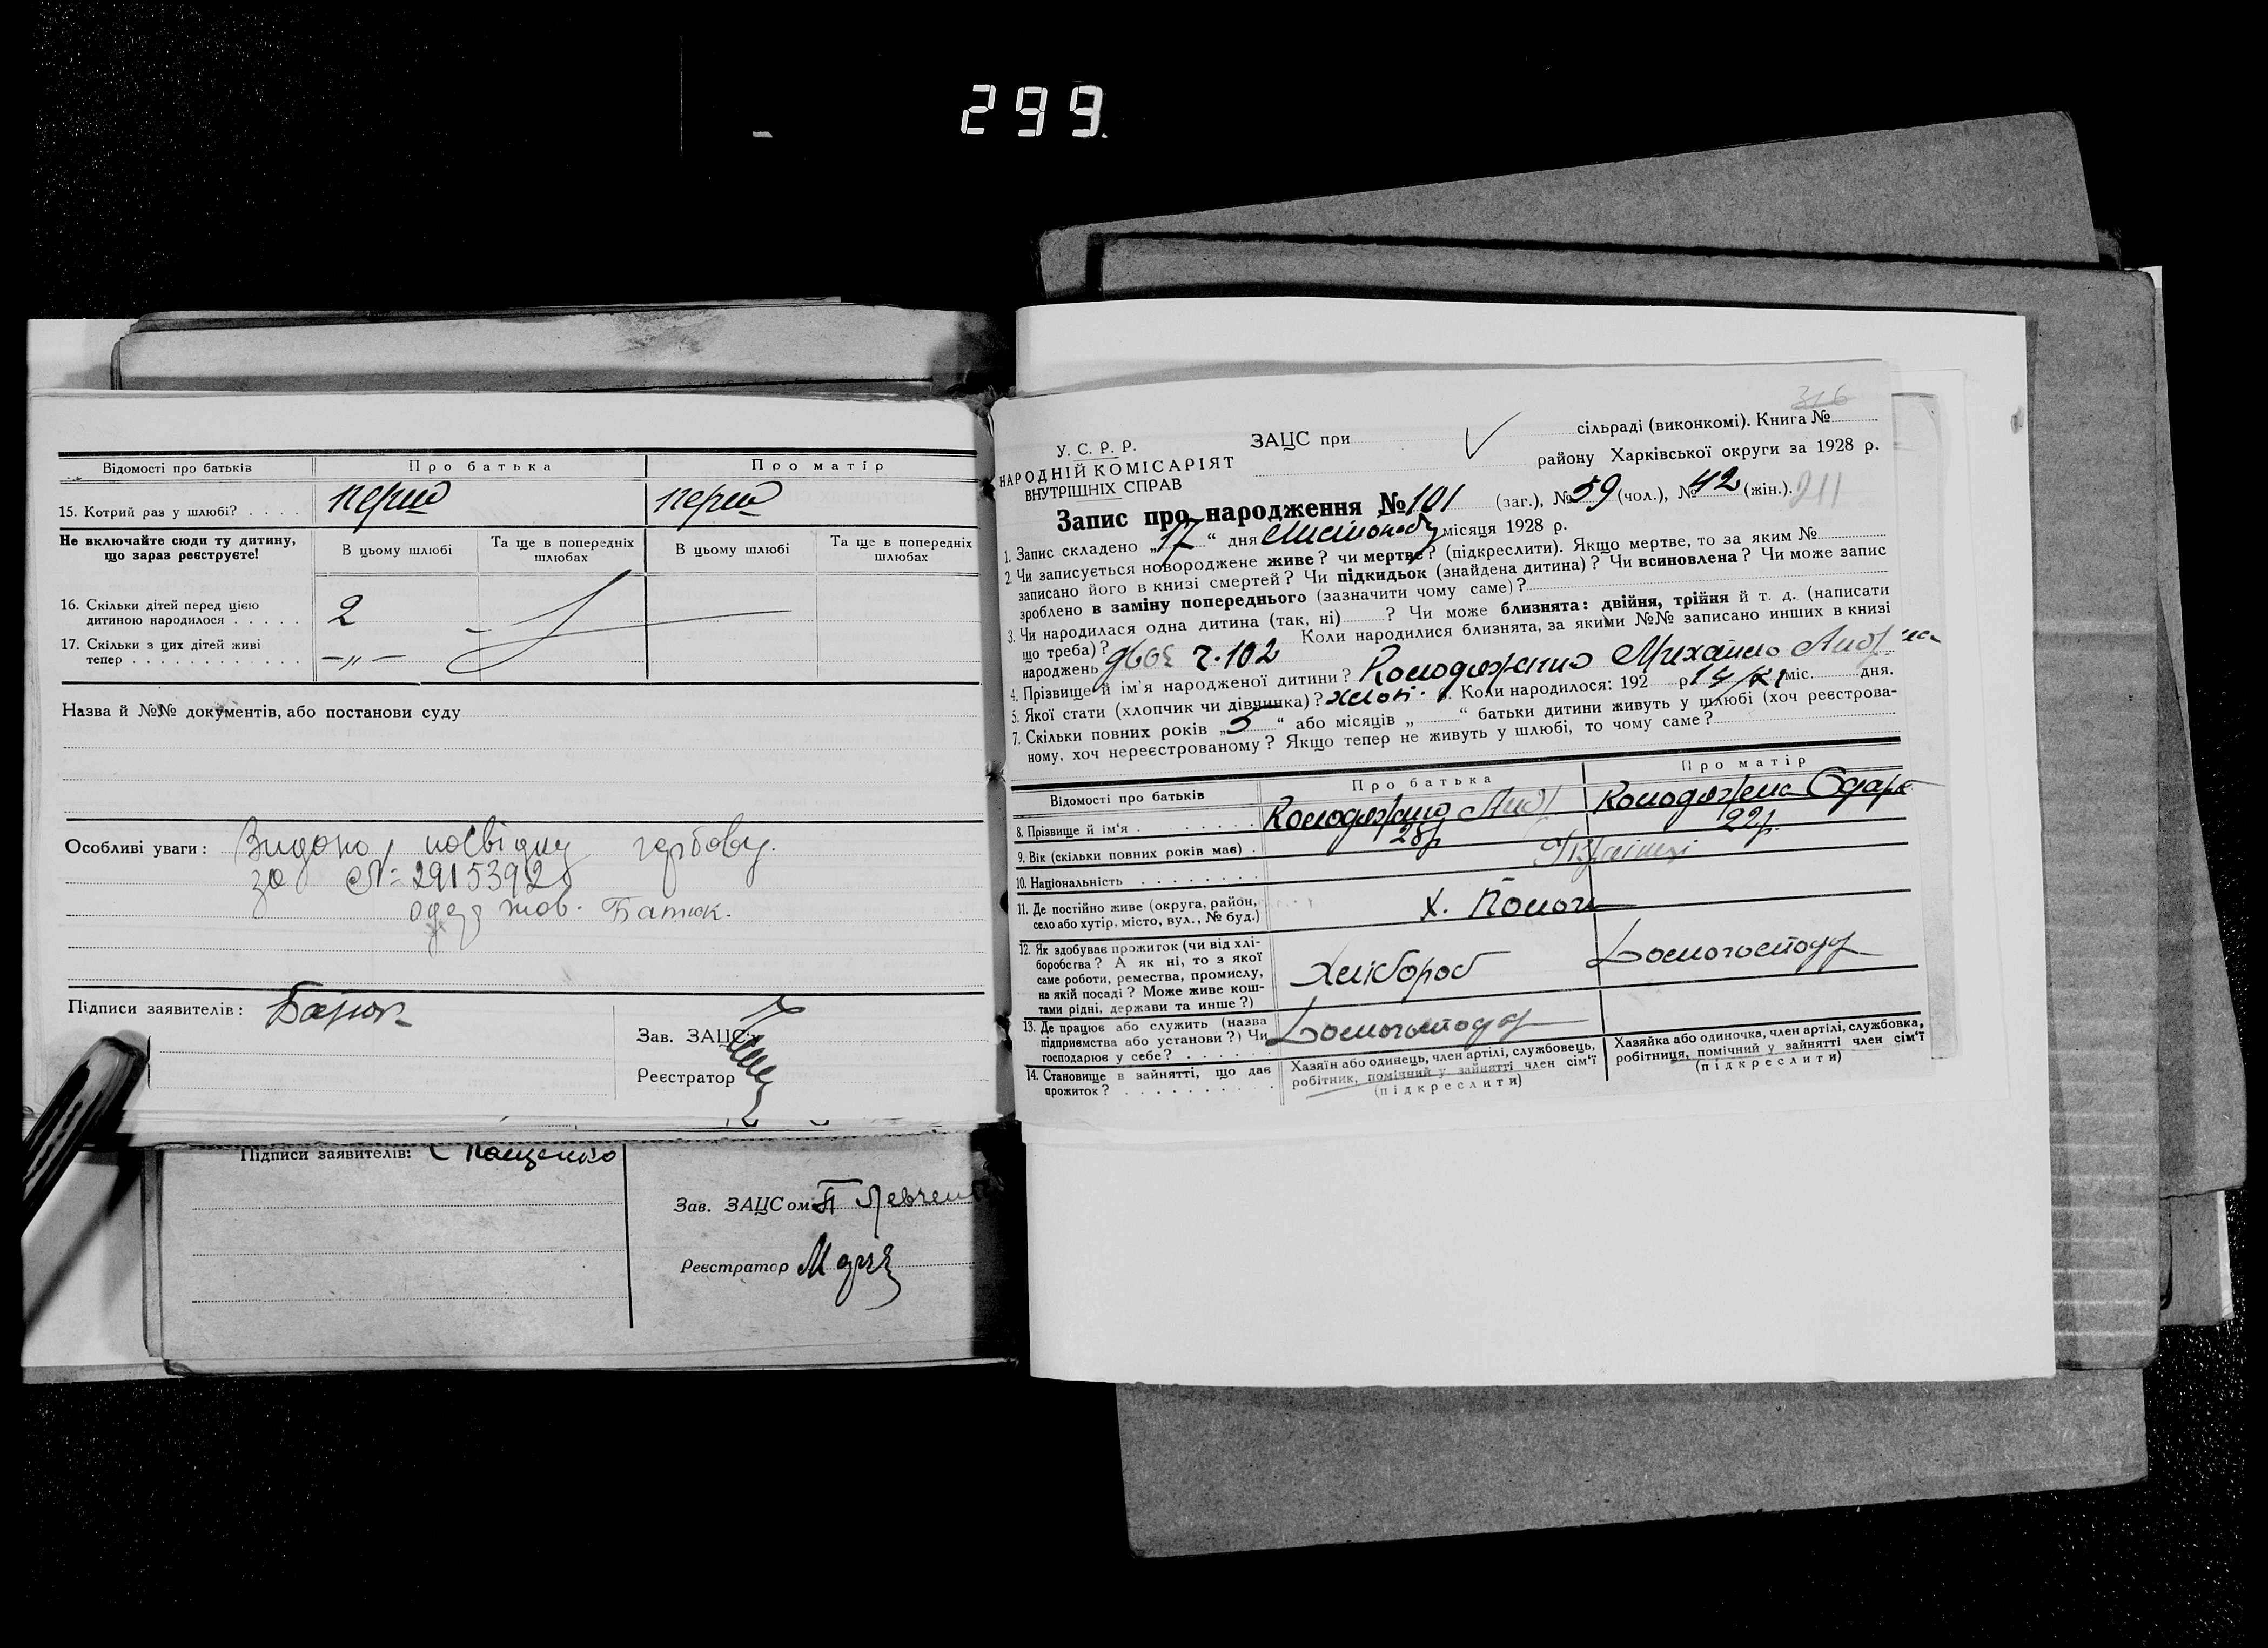 299.
Відомості про батьків
Про батька
Про матір
15. Котрий раз у шлюбі? . . . .
перш
перш
Не включайте сюди ту дитину, що зараз реєструєте!
В цьому шлюбі
Та ще в попередніх шлюбах
В цьому шлюбі
Та ще в попередніх шлюбах
16. Скільки дітей перед цією
дитиною народилося . . . . .
2
17. Скільки з цих дітей живі
тепер . . . . . . . . . . . .
–„–
Назва й №№ документів, або постанови суду
Особливі уваги:
Видано посвідку гербову.
за № 2915392
жов. Батюк.
Підписи заявителів:
Зав. ЗАЦС
Реєстратор
Підписи заявителів: Пащенко
Зав. ЗАЦСом П Левчен
Реєстратор
316
У. С. Р. Р.
НАРОДНІЙ КОМІСАРІЯТ
ВНУТРІШНІХ СПРАВ
ЗАЦС при
сільраді (виконкомі). Книга №
району Харківської округи за 1928 р.
Запис про народження №101 (заг.), №59 (чол.), №42 (жін.).
211
1. Запис складено „17“ дня Листопаду місяця 1928 р.
2. Чи записується новороджене живе? чи мертве? (підкреслити). Якщо мертве, то за яким №
записано його в книзі смертей? Чи підкидьок (знайдена дитина)? Чи всиновлена? Чи може запис
зроблено в заміну попереднього (зазначити чому саме)?
3. Чи народилася одна дитина (так, ні) ? Чи може близнята: двійня, трійня й т. д. (написати
що треба)? Коли народилися близнята, за якими №№ записано инших в книзі
народжень двоє ч. 102
4. Прізвище й ім'я народженої дитини? Колодяжно Михайло
5. Якої стати (хлопчик чи дівчинка)? хлоп. Коли народилося: 192 р. 14/XI міс. дня.
7. Скільки повних років „5“ або місяців „ “ батьки дитини живуть у шлюбі (хоч реєстрова-
ному, хоч нереєстрованому? Якщо тепер не живуть у шлюбі, то чому саме?
Відомості про батьків
Про батька
Про матір
8. Прізвище й ім'я . . . . . . . . .
Колодяжно Анд.
Колодяжна Одарк
9. Вік (скільки повних років має) .
28р
22р.
10. Національність . . . . . . . .
Українці
11. Де постійно живе (округа, район,
село або хутір, місто, вул., № буд.)
12. Як здобуває прожиток (чи від хлі-
боробства? А як ні, то з якої
саме роботи, ремества, промислу,
на якій посаді? Може живе кош-
тами рідні, держави та инше?)
Хлібороб
Домогоспод
13. Де працює або служить (назва
підприємства або установи?) Чи
господарює у себе? . . . . . .
Домогоспод
14. Становище в зайнятті, що дає
прожиток? . . . . . . . . . .
Хазяїн або одинець, член артілі, службовець,
робітник, помічний у зайнятті член сім'ї
(підкреслити)
Хазяйка або одиночка, член артілі, службовка,
робітниця, помічний у зайнятті член сім'ї
(підкреслити)